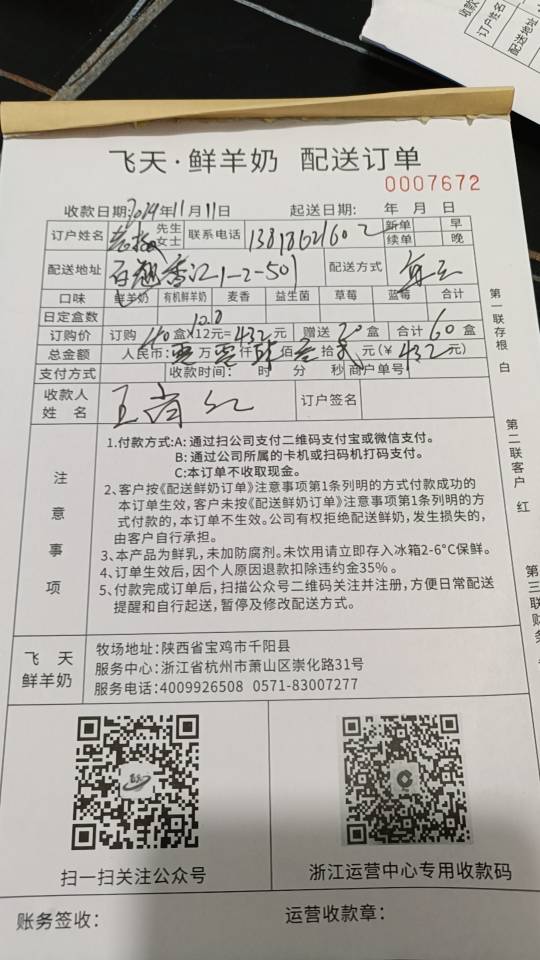 收款
订户姓名
配送地址
飞天·鲜羊奶 配送订单
0007672
收款日期:2019年11月11日 起送日期: 年 月 日
订户姓名 先生 女士 联系电话 新单 续单 早 晚
配送地址 香江1-2-501 配送方式
口味 鲜羊奶 有机鲜羊奶 麦香 益生菌 草莓 蓝莓 合计
日定盒数
订购价 订购40盒×12元=432元 10.8 赠送20盒 合计60盒
总金额 人民币:零万零仟肆佰叁拾贰元(¥432元)
支付方式 收款时间: 时 分 秒 商户单号
收款人姓名 王 红 订户签名
注意事项
1.付款方式:A: 通过扫公司支付二维码支付宝或微信支付。
B: 通过公司所属的卡机或扫码机打码支付。
C:本订单不收取现金。
2、客户按《配送鲜奶订单》注意事项第1条列明的方式付款成功的
本订单生效,客户未按《配送鲜奶订单》注意事项第1条列明的方
式付款的,本订单不生效。公司有权拒绝配送鲜奶,发生损失的,
由客户自行承担。
3、本产品为鲜乳,未加防腐剂。未饮用请立即存入冰箱2-6°C保鲜。
4、订单生效后,因个人原因退款扣除违约金35%。
5、付款完成订单后,扫描公众号二维码关注并注册,方便日常配送
提醒和自行起送,暂停及修改配送方式。
飞天
鲜羊奶
牧场地址:陕西省宝鸡市千阳县
服务中心:浙江省杭州市萧山区崇化路31号
服务电话:4009926508 0571-83007277
扫一扫关注公众号
浙江运营中心专用收款码
账务签收: 运营收款章:
第一联存根 白
第二联客户 红
第三联财务